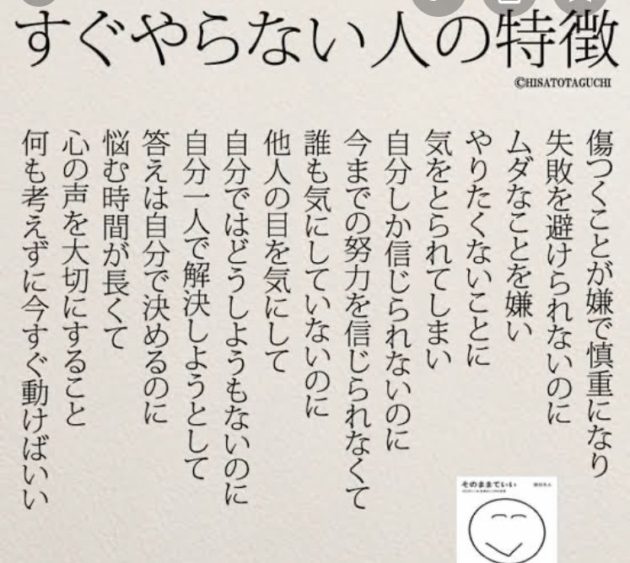 すぐやらない人の特徴
©HISATOTAGUCHI
傷つくことが嫌で慎重になり
失敗を避けられないのに
ムダなことを嫌い
やりたくないことに
気をとられてしまい
自分しか信じられないのに
今までの努力を信じられなくて
誰も気にしていないのに
他人の目を気にして
自分ではどうしようもないのに
自分一人で解決しようとして
答えは自分で決めるのに
悩む時間が長くて
心の声を大切にすること
何も考えずに今すぐ動けばいい
そのままでいい